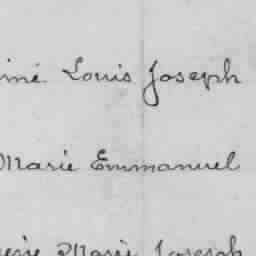 Louis Joseph
Marie Emmanuel
Marie Joseph